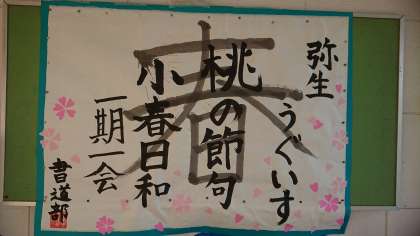 春
弥生
うぐいす
桃の節句
小春日和
一期一会
書道部